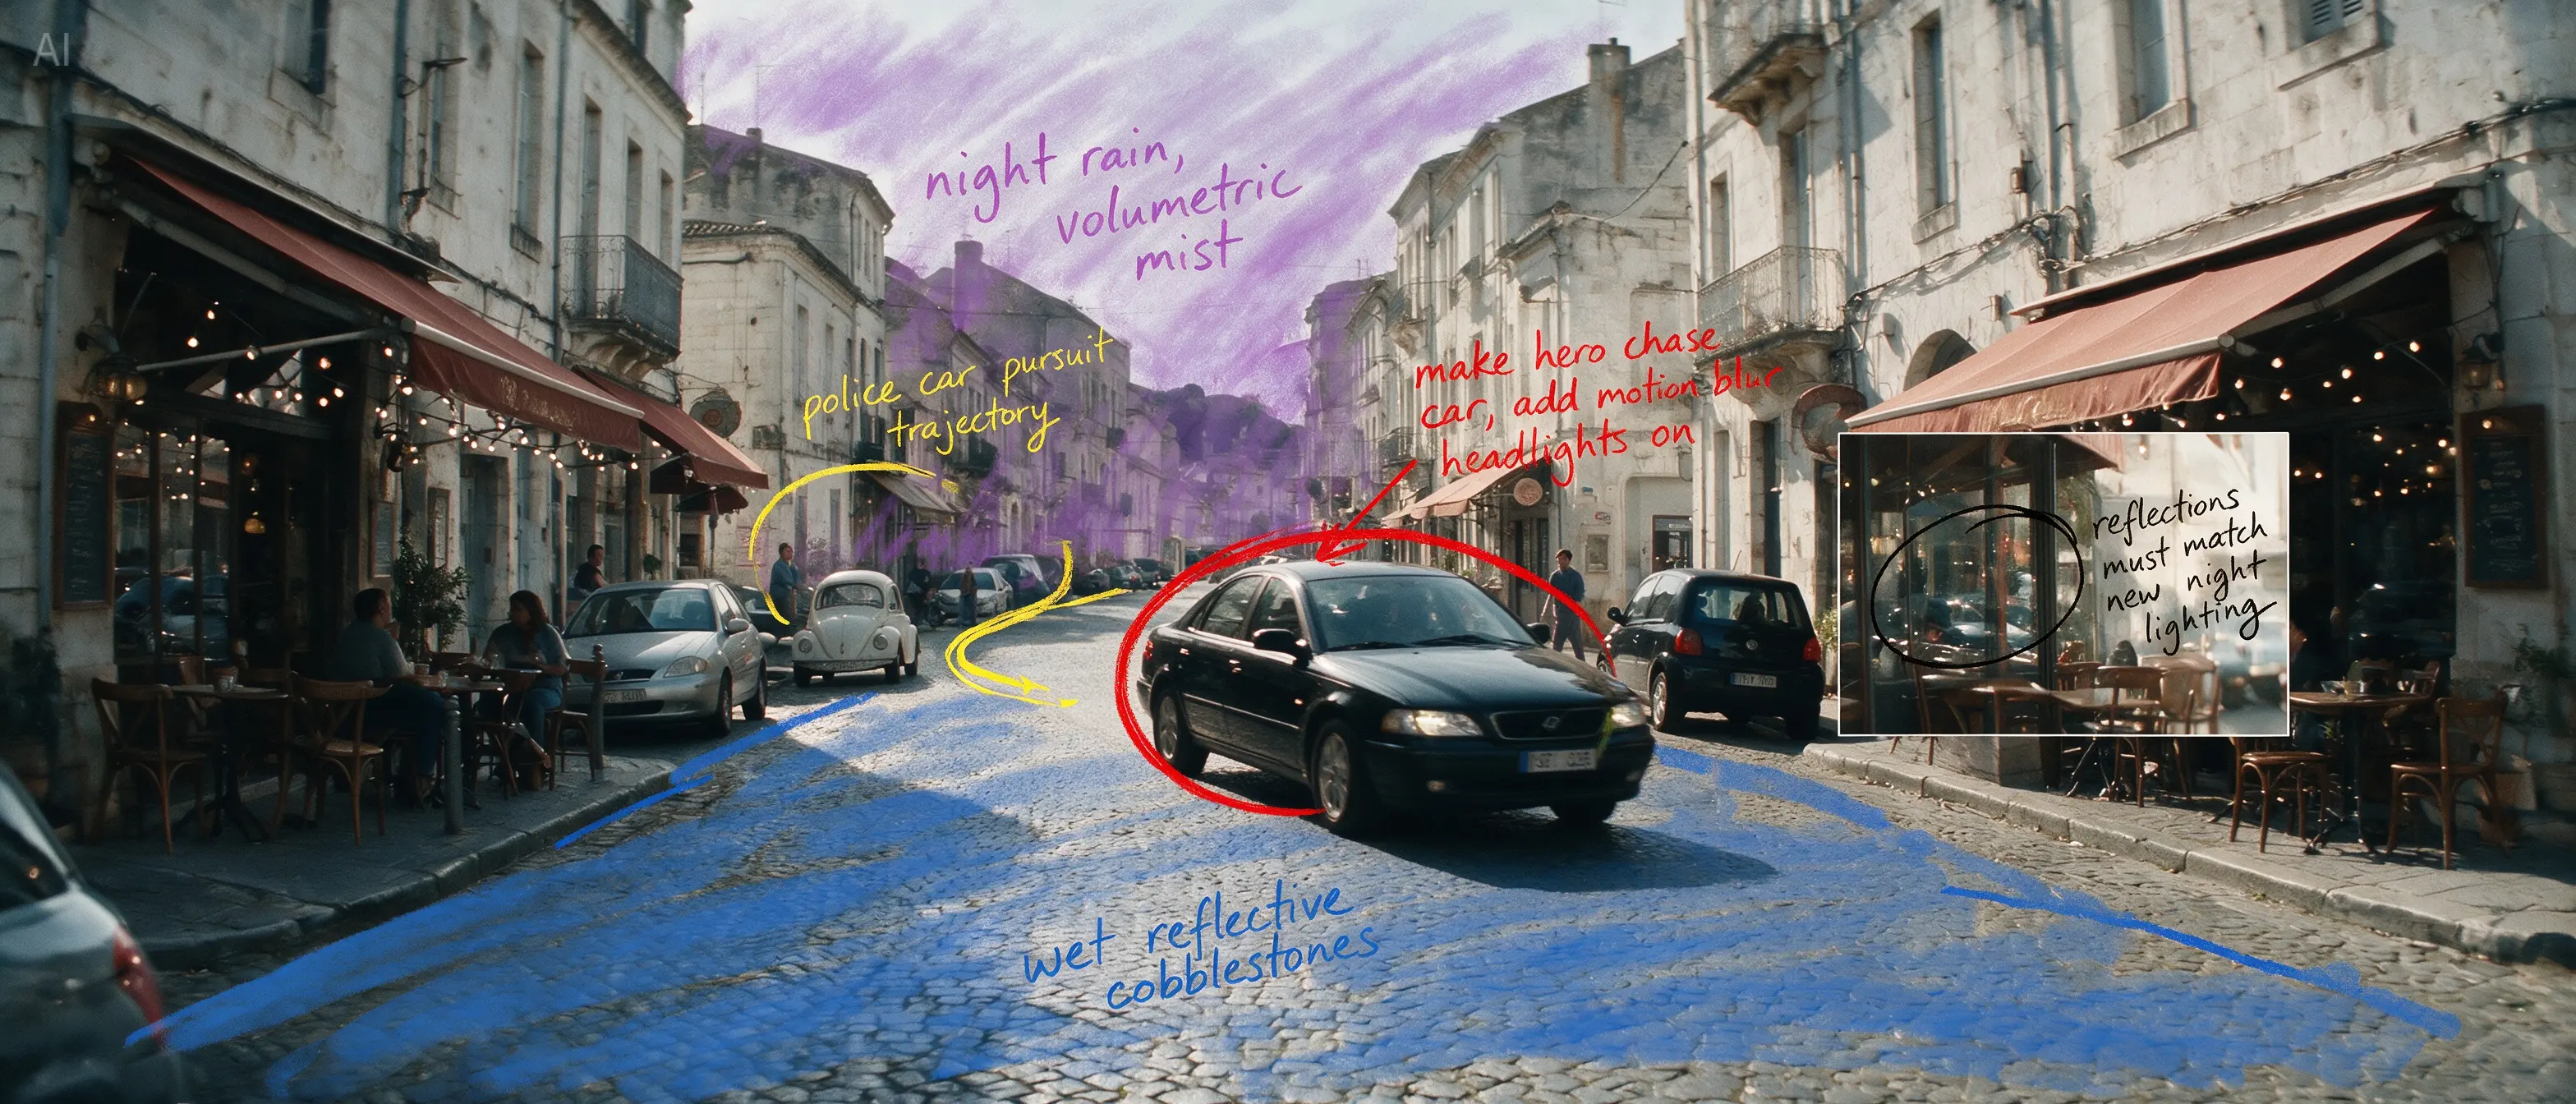 AI
night rain,
volumetric
mist
police car pursuit
trajectory
make hero chase
car, add motion blur
headlights on
reflections
must match
new night
lighting
wet reflective
cobblestones